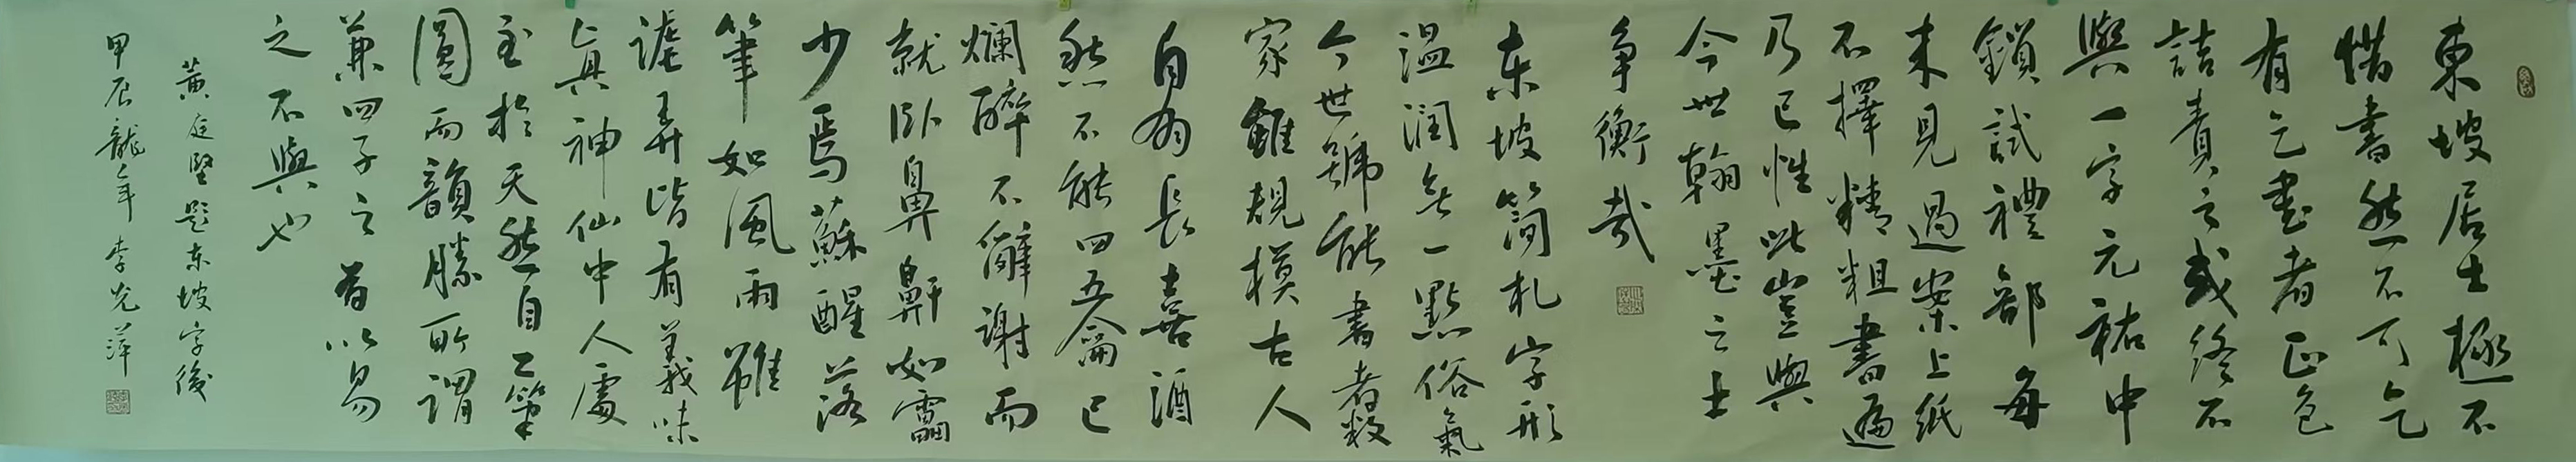 東坡居士極不
惜書然不可乞
有乞書者正色
詰責之或終不
與一字元祐中
鎖試禮部每
来見過案上紙
不擇精粗書遍
乃已性此豈與
今世翰墨之士
争衡哉
東坡简札字形
温润無一點俗氣
今世號能書者数
家雖規模古人
自有長喜酒
然不能四五龠已
爛醉不辭謝而
就臥鼻鼾如雷
少焉蘇醒落
筆如風雨雖
謔弄皆有義味
真神仙中人處
至於天然自工筆
圓而韻勝所謂
兼四子之有以易
之不與也
黄庭堅題东坡字後
甲辰龍年李光萍